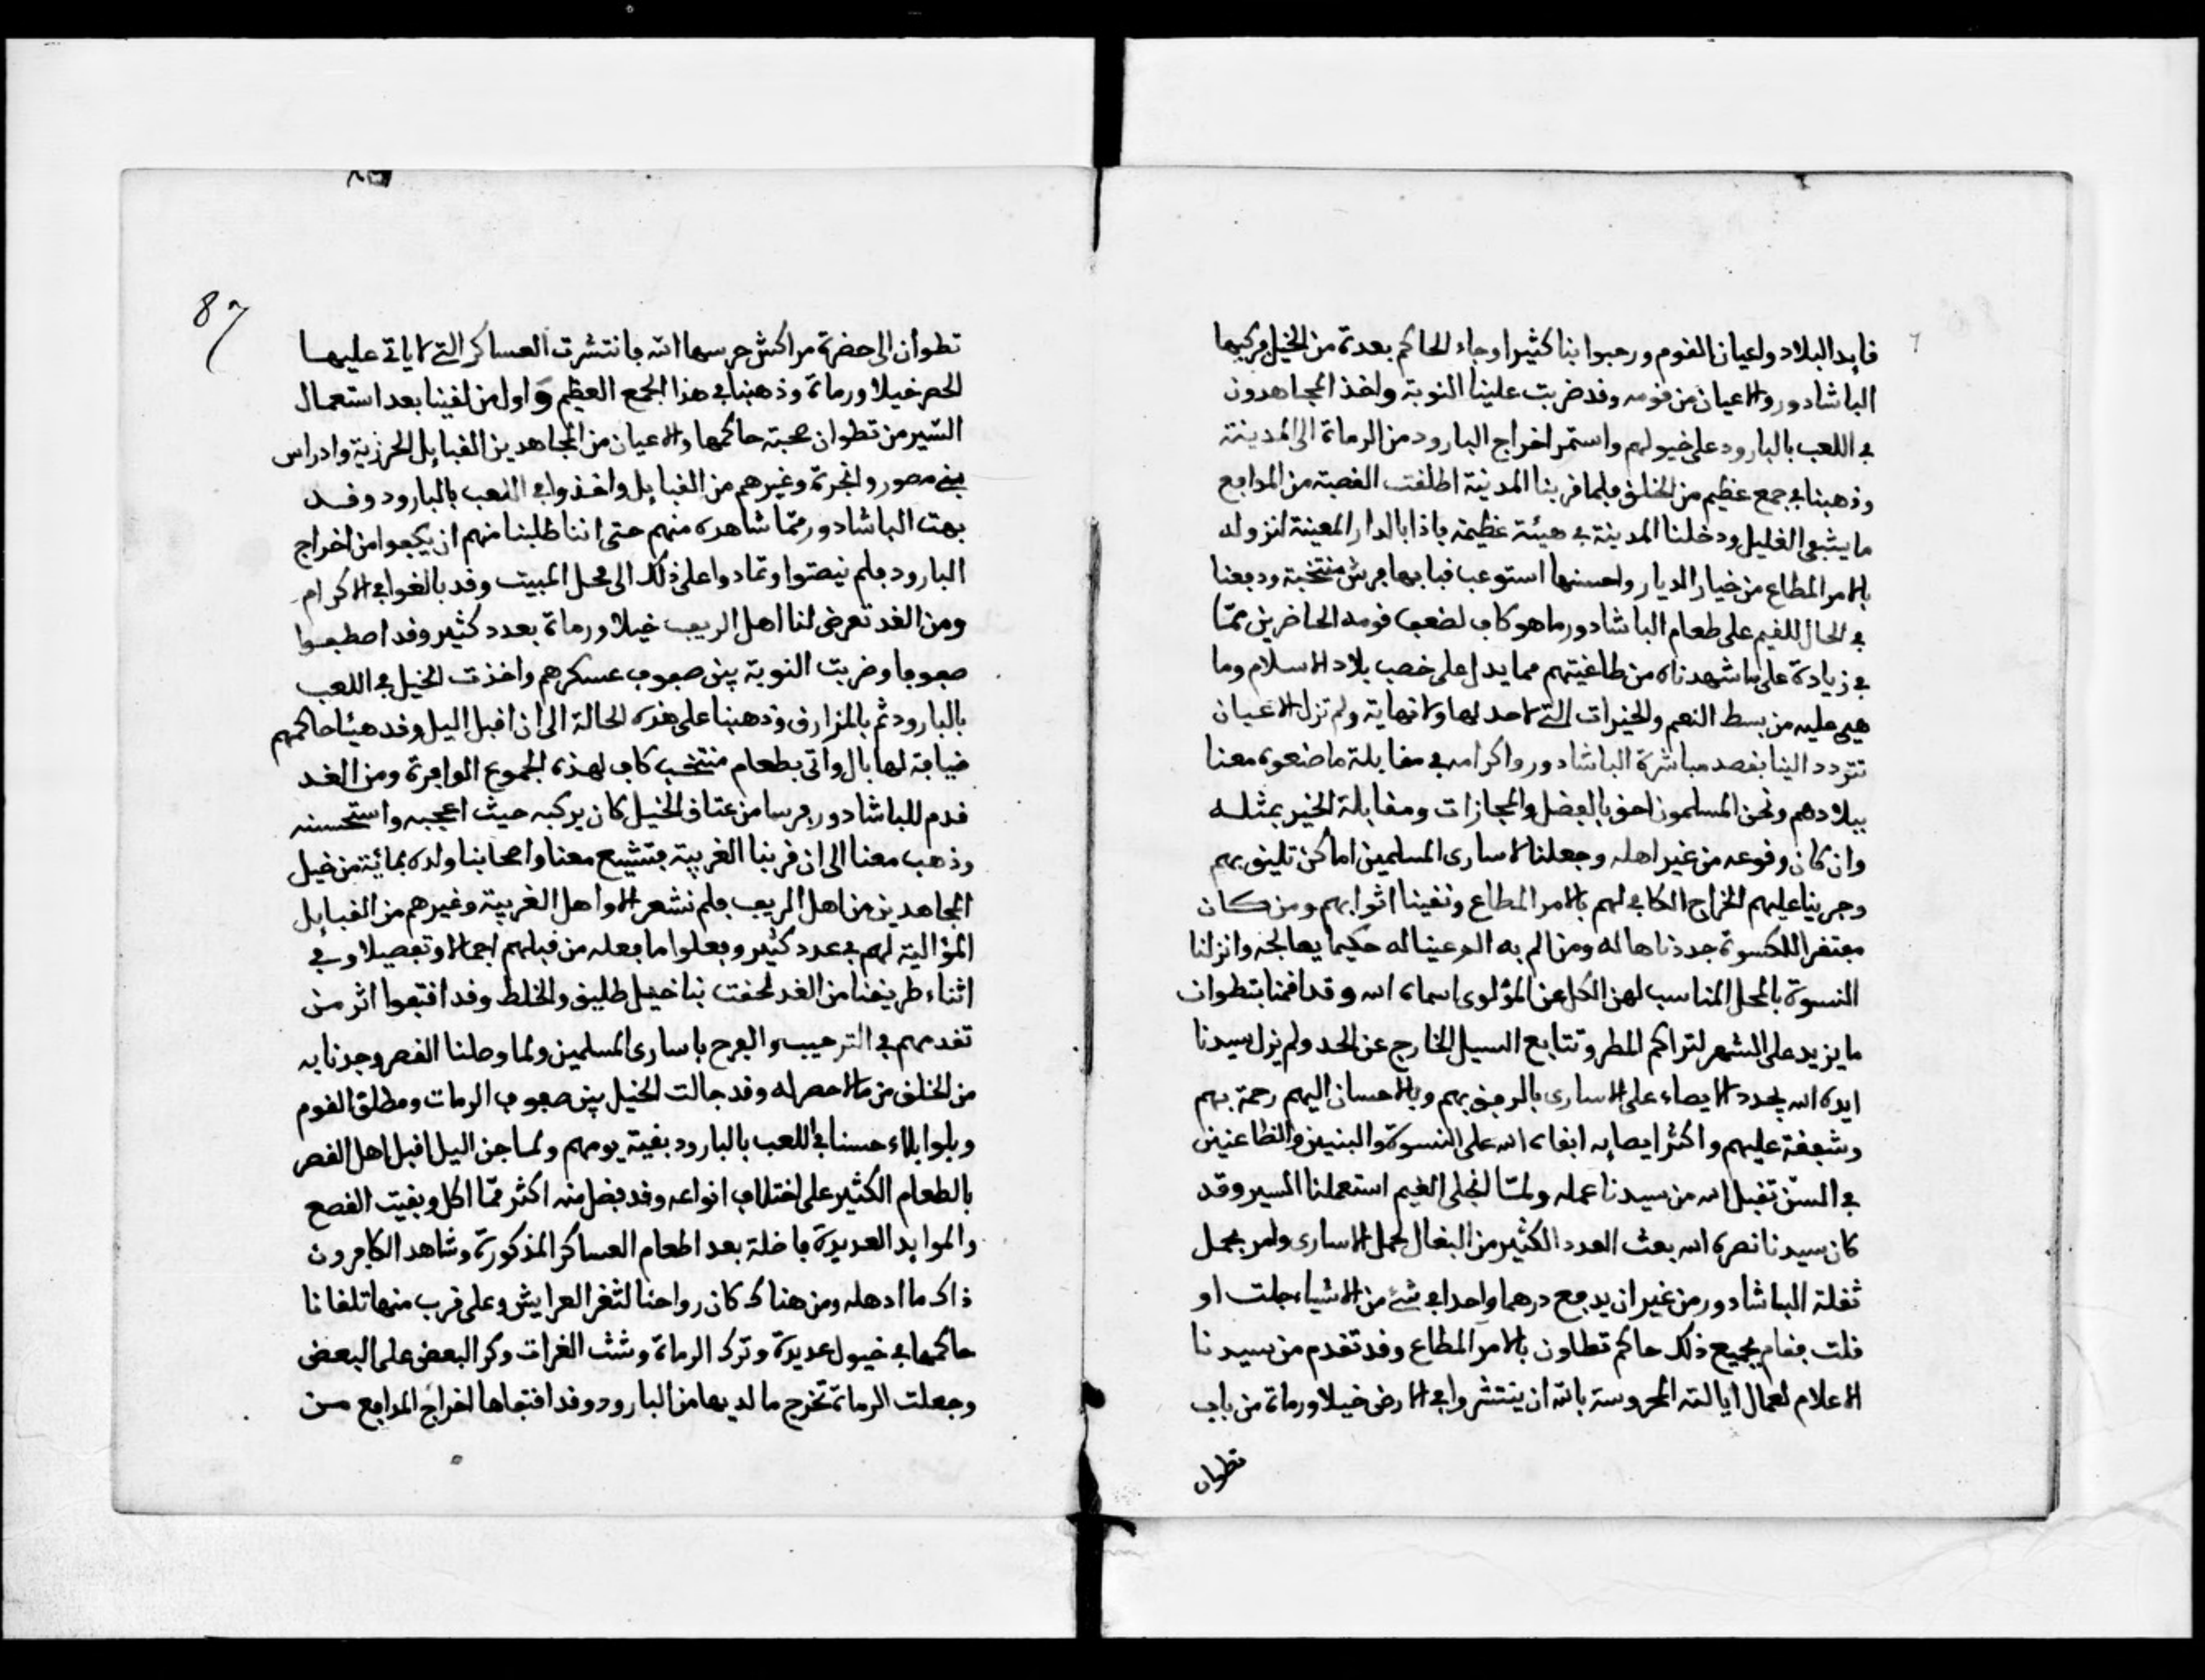 قايد البلاد واعيان القوم ورحبوا بنا كثيرا وجاء الحاكم بعدة من الخيل فركبها
الباشادور والاعيان من قومه وقد ضربت علينا النوبة واخذ المجاهدون
في اللعب بالبارود على خيولهم واستمر اخراج البارود من الرماة الى المدينة
وذهبنا في جمع عظيم من الخلق فلما قربنا المدينة اطلقت القصبة من المدافع
ما يشفي الغليل ودخلنا المدينة في هيئة عظيمة فاذا بالدار المعينة لنزوله
بالامر المطاع من خيار الديار واحسنها استوعب قبابها فرش منتخبة ودفعنا
في الحال للقيم على طعام الباشادور ما هو كاف لضعف قومه الحاضرين ممّا
في زيادة على ما شهدناه من طاغيتهم مما يدل على خصب بلاد الاسلام وما
هي عليه من بسط النعم والخيرات التي لاحد لها ولا نهاية ولم تزل الاعيان
تتردد الينا بقصد مباشرة الباشادور واكرامه في مقابلة ما صنعوه معنا
ببلادهم ونحن المسلمون احق بالفضل والمجازات ومقابلة الخير بمثلــه
وان كان وقوعه من غير اهله وجعلنا لاسارى المسلمين اماكن تليق بهم
وجرينا عليهم الخراج الكافي لهم بالامر المطاع ونقينا اثوابهم ومن كـان
مفتقرا للكسوة جددناها له ومن الم به الم عينا له حكيما يعالجه وانزلنا
النسوة بالمحل المناسب لهن الكل عن المؤلوى اسماه الله وقد اقمنا بتطوان
ما يزيد على الشهر لتراكم المطر وتتابع السيل الخارج عن الحد ولم يزل سيدنا
ايده الله يجدد الايصاء على الاسارى بالرفق بهم وبالاحسان اليهم رحمة بهم
وشفقة عليهم واكثر ايصايه ابقاه الله على النسوة والبنين والظاعنين
في السنّ تقبل الله من سيدنا عمله ولمّا انجلى الغيم استعملنا المسير وقد
كان سيدنا نصره الله بعث العدد الكثير من البغال لحمل الاسارى وامر بحمل
ثقلة الباشادور من غير ان يدفع درهما واحدا في شئ من الاشياء جلت او
قلت فقام بجميع ذلك حاكم تطاون بالامر المطاع وقد تقدم من سيدنا
الاعلام لعمال ايالته المحروسة بالله ان ينتشروا في الارض خيلا ورماة من باب
تطوان
87
تطوان الى حضرة مراكش حرسها الله فانتشرت العساكر التي لا ياتي عليهـا
الحصر خيلا ورماة وذهبنا في هذا الجمع العظيم واول من لقينا بعد استعمال
السّير من تطوان صحبة حاكمها والاعيان من المجاهدين القبايل الحرزية وادراس
بني مصور وانجرة وغيرهم من القبايل واخذوا في اللعب بالبارود وقــد
بهت الباشادور ممّا شاهده منهم حتى اننا طلبنا منهم ان يكفوا من اخراج
البارود فلم ينصتوا وتمادوا على ذلك الى محل المبيت وقد بالغوا في الاكرام
ومن الغد تعرض لنا اهل الريف خيلا ورماة بعدد كثير وقد اصطفـوا
صفوفا وضربت النوبة بين صفوف عسكرهم واخذت الخيل في اللعب
بالبارود ثم بالمزارق وذهبنا على هذه الحالة الى ان اقبل اليل وقد هيّا حاكمهم
ضيافة لها بال واتى بطعام منتخب كاف لهذه الجموع الوافرة ومن الغـد
قدم للباشادور فرسا من عتاق الخيل كان يركبه حيث اعجبه واستحسنه
وذهب معنا الى ان قربنا الغربية فتشيع معنا واصحابنا ولده بمائية من خيل
المجاهدين من اهل الريف فلم نشعر الا واهل الغربية وغيرهم من القبايل
المؤالية لهم في عدد كثير وفعلوا ما فعله من قبلهم اجمالا وتفصيلا وفي
اثناء طريقنا من الغد لحقت بنا خيل طليق والخلط وقد اقتفوا اثر مـن
تقدمهم في الترحيب والفرح باسارى المسلمين ولما وصلنا القصر وجدنا به
من الخلق من مالاحصر له وقد جالت الخيل بين صفوف الرمات ومطلق القوم
وبلوا بلاء حسنا في اللعب بالبارود بقية يومهم ولما جن اليل اقبل اهل القصر
بالطعام الكثير على اختلاف انواعه وقد فضل منه اكثر ممّا اكل وبقيت القصع
والموايد العديدة فاضلة بعد اطعام العساكر المذكورة وشاهد الكافرون
ذاك ما ادهله ومن هناك كان رواحنا لثغر العرايش وعلى قرب منها تلقانا
حاكمها في خيول عديدة وترك الرماة وشنت الغرات وكر البعض على البعض
وجعلت الرماة تخرج ما لديها من البارود وقد اقتفاها اخراج المدافع مـن